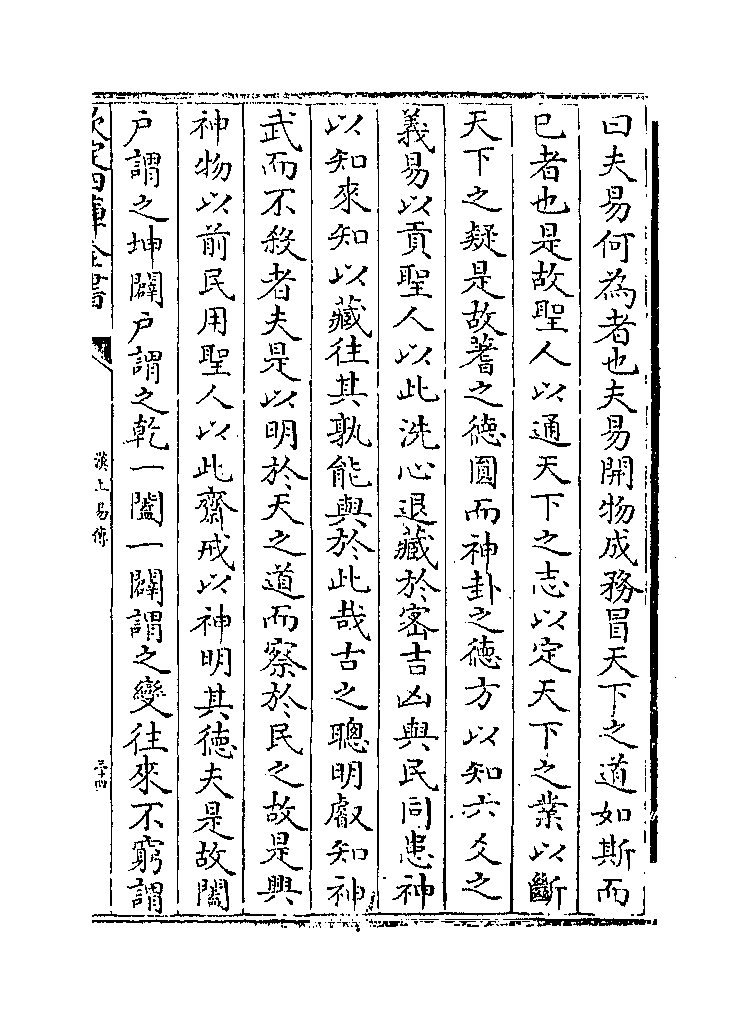 曰夫易何為者也夫易開物成務冒天下之道如斯而
已者也是故聖人以通天下之志以定天下之業以斷
天下之疑是故蓍之徳圓而神卦之徳方以知六爻之
義易以貢聖人以此洗心退藏於宻吉凶與民同患神
以知來知以藏往其孰能與於此哉古之聰明叡知神
武而不殺者夫是以明於天之道而察於民之故是興
神物以前民用聖人以此齋戒以神明其徳夫是故闔
户謂之坤闢户謂之乾一闔一闢謂之變往來不窮謂
欽定四庫全書
漢上易傳
三十四